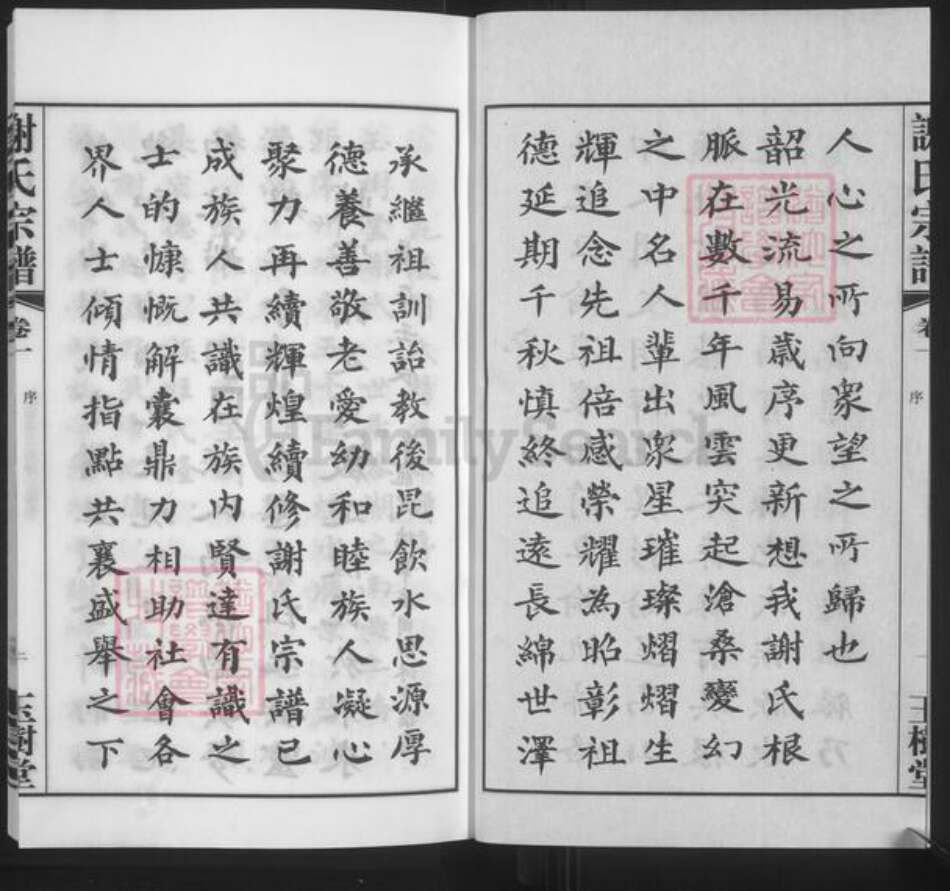 人心之所向衆望之所歸也
韶光流易歲序更新想我謝氏根
脈在數千年風雲突起滄桑變幻
之中名人輩出衆星璀璨熠熠生
輝追念先祖倍感榮耀為昭彰祖
德延期千秋慎終追遠長綿世澤
承繼祖訓詒教後昆飲水思源厚
德養善敬老愛幼和睦族人凝心
聚力再續輝煌續修謝氏宗譜已
成族人共識在族内賢達有識之
士的慷慨解囊鼎力相助社會各
界人士傾情指點共襄盛舉之下
謝氏宗譜
卷一
序
玉樹堂
謝氏宗譜
卷一
序
玉樹堂
FamilySearch